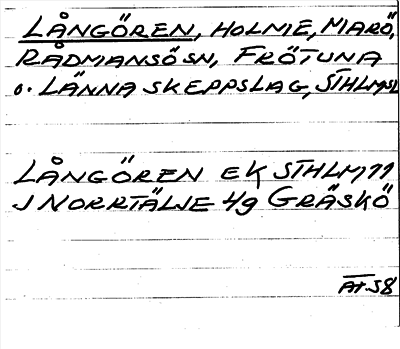 LÅNGÖREN, HOLME, MARÖ,
RÅDMANSÖ SN, FRÖTUNA
o. LÄNNA SKEPPSLAG, STHLMSL
LÅNGÖREN EK STHLM 11
J NORRTÄLJE 4g GRÄSKÖ
AT-58